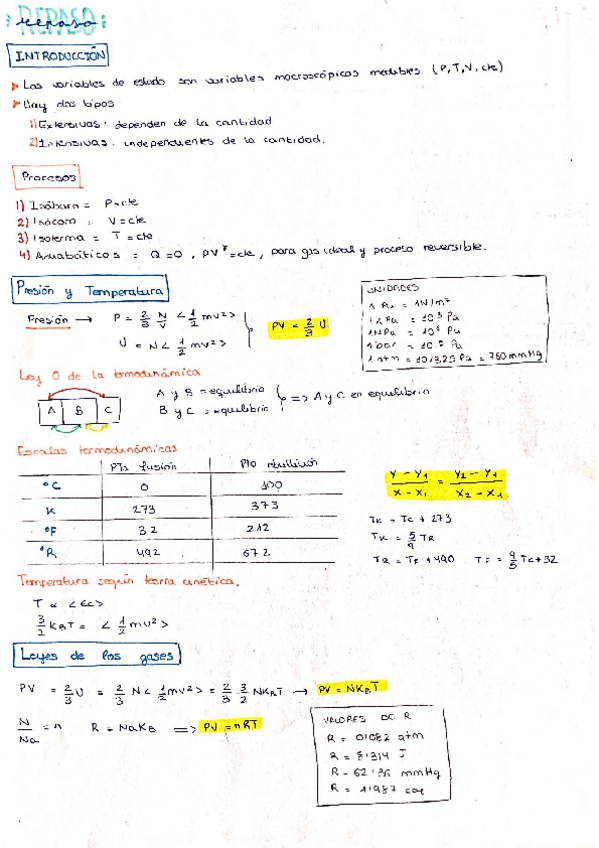 REPASO
repaso
INTRODUCCIÓN
Las variables de estado son variables macroscópicas medibles (P,T,V, cte)
Hay dos tipos
1) Extensivas: dependen de la cantidad
2) Intensivas: independientes de la cantidad.
Procesos
1) Isóbara = P=cte
2) Isócoro = V=cte
3) Isoterma = T=cte
4) Adiabáticos = Q=0, PV^γ=cte, para gas ideal y proceso reversible.
Presión y Temperatura
Presión → P = 2/3 N/V <1/2 mv²>
U = N<1/2 mv²>
PV = 2/3 U
UNIDADES
1 Pa = 1N/m²
1 kPa = 10³ Pa
1MPa = 10⁶ Pa
1 bar = 10⁵ Pa
1 atm = 101325 Pa = 760 mmHg
Ley 0 de la termodinámica
A B C
A y B = equilibrio
B y C = equilibrio
=> A y C en equilibrio
Escalas termodinámicas
Pto fusión Pto ebullición
°C 0 100
K 273 373
°F 32 212
°R 492 672
y-y₁/x-x₁ = y₂-y₁/x₂-x₁
TK = Tc + 273
TK = 5/9 TR
TR = TF + 490 TF = 9/5 Tc+32
Temperatura según teoría cinética.
T ∝ <Ec>
3/2 kBT = <1/2 mv²>
Leyes de los gases
PV = 2/3 U = 2/3 N<1/2 mv²> = 2/3 3/2 NKBT → PV = NKBT
N/Na = n R = NaKB => PV = nRT
VALORES DE R
R = 0'082 atm
R = 8'314 J
R = 62'36 mmHg
R = 1'987 cal